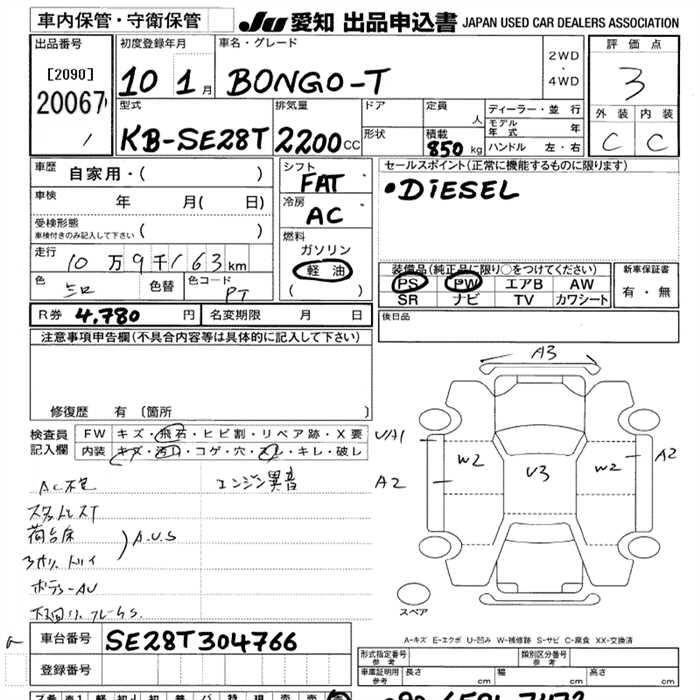 車内保管・守衛保管
JU 愛知 出品申込書 JAPAN USED CAR DEALERS ASSOCIATION
出品番号
[2090]
20067
初度登録年月
10 1月
車名・グレード
BONGO-T
2WD
・
4WD
評価点
3
外装 内装
C C
型式
KB-SE28T
排気量
2200cc
ドア
形状
定員
人
積載
850kg
ディーラー・並行
モデル年式 年
ハンドル 左・右
車歴
自家用・( )
車検
年 月( 日)
受検形態
車検付きのみ記入して下さい
( )
走行
10万9千163km
色
色替
色コード
PT
シフト
FAT
冷房
AC
燃料
ガソリン
軽油
( )
セールスポイント(正常に機能するものに限ります)
•DiESEL
装備品(純正品に限り○をつけてください)
PS PW エアB AW
SR ナビ TV カワシート
新車保証書
有・無
R券 4,780円
名変期限 月 日
後日品
注意事項申告欄(不具合内容等は具体的に記入して下さい)
修復歴 有 〔箇所 〕
検査員
記入欄
FW キズ・飛石・ヒビ割・リペア跡・X要
内装 キズ・汚れ・コゲ・穴・スレ・キレ・破レ
エンジン異音
荷台床
A.U.S
ボデーAU
A3
U/A1
W2
U3
W2
A2
A2
スペア
A-キズ E-エクボ U-凹み W-補修跡 S-サビ C-腐食 XX-交換済
車台番号 SE28T304766
登録番号
形式指定番号
参考
類別区分番号
参考
車庫証明用
参考
長さ cm 幅 cm 高さ cm